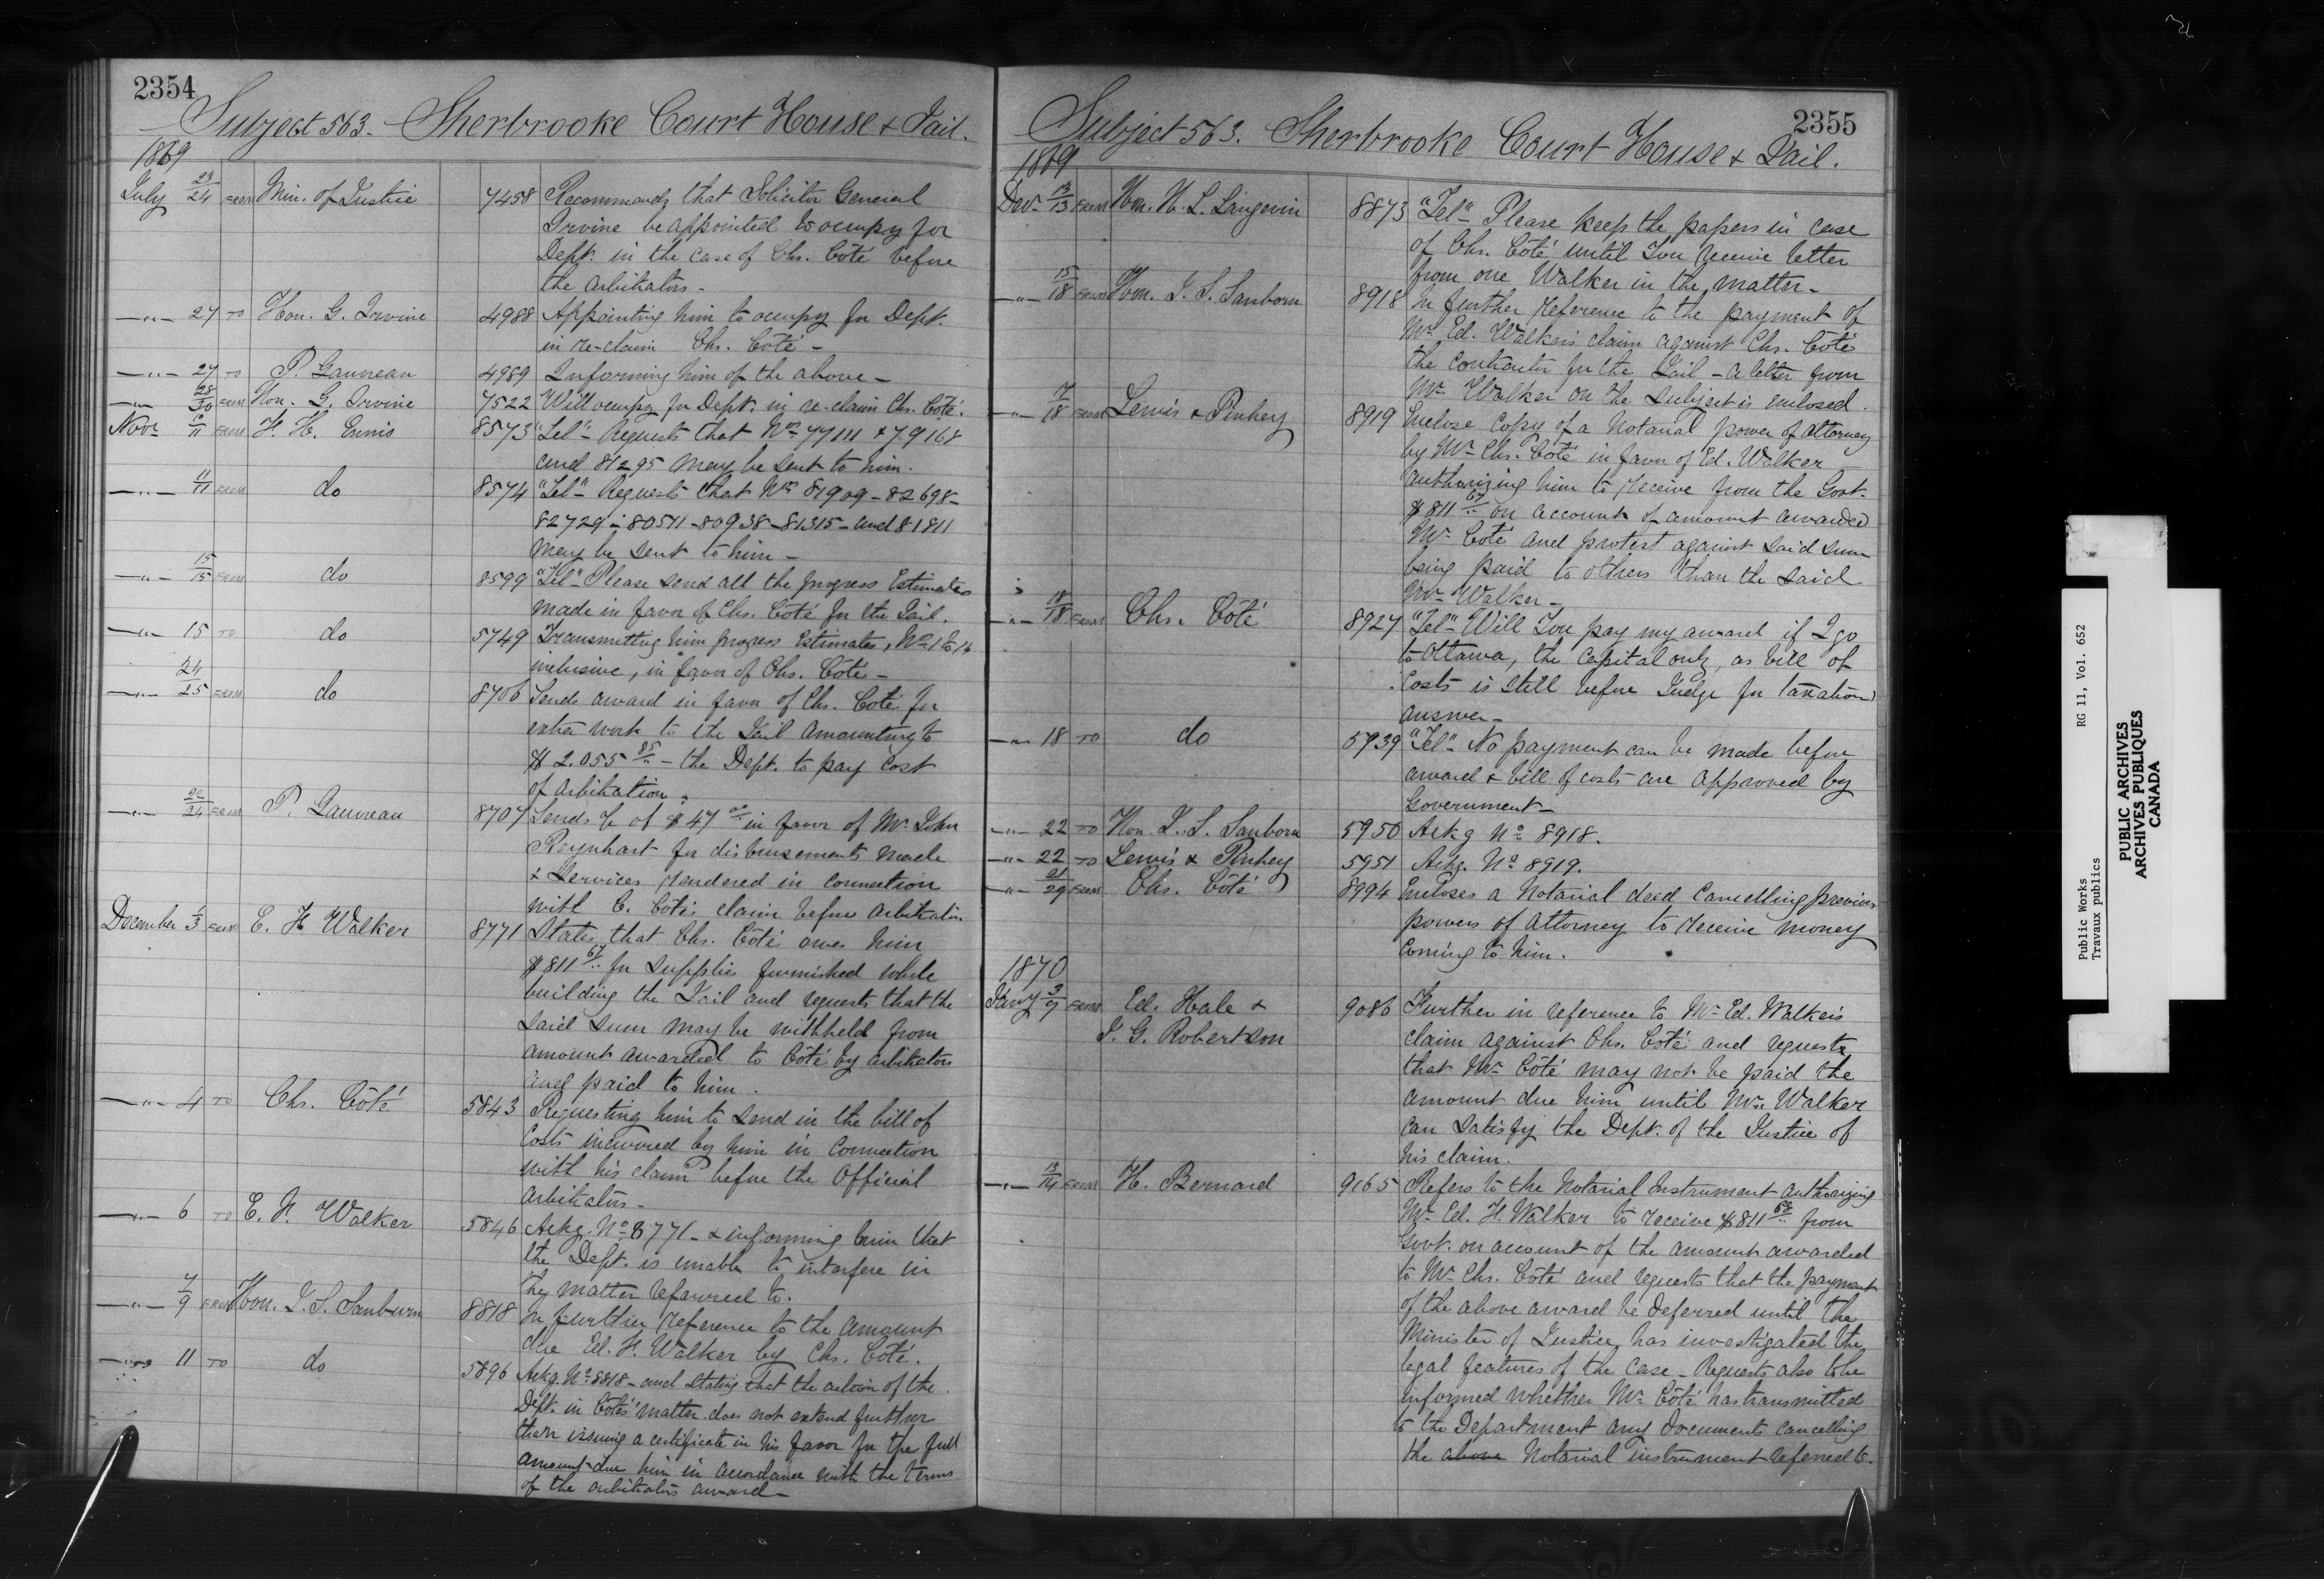 2354
Subject 563. Sherbrooke Court House & Jail.
1869
July 23/24 FROM Min. of Justice 7458 Recommends that Solicitor General
Irvine be appointed to occupy for
Dept. in the case of Chs. Côté before
the arbitrators.
—"— 27 TO Hon. G. Irvine 4988 Appointing him to occupy for Dept.
in re-claim Chs. Côté —
—"— 27 TO P. Gauvreau 4989 Informing him of the above —
—"— 28/30 FROM Hon. G. Irvine 7522 Will occupy for Dept. in re-claim Chs. Côté.
Novr 11 FROM H. H. Ennis 8573 "Tel" Requests that Nos 77111 & 79168
and 81295 may be sent to him.
—"— 11/11 FROM do 8574 "Tel" Requests that Nos 81909 - 82698 -
82729 - 80511 - 80938 - 81315 - and 81811
may be sent to him —
—"— 15/15 FROM do 8599 "Tel" Please send all the progress Estimates
made in favor of Chs. Côté for the Jail.
—"— 15 TO do 5749 Transmitting him progress Estimates, Nos 1 to 16
inclusive, in favor of Chs. Côté —
—"— 24/25 FROM do 8706 Sends award in favor of Chs. Côté for
extra work to the Jail amounting to
$ 2.055 85/.. — the Dept. to pay cost
of arbitration.
—"— 22/24 FROM P. Gauvreau 8707 Sends % of $ 47 in favor of Mr. John
Reynhart for disbursements made
& Services rendered in connection
with C. Côté's claim before arbitrators
December 1/3 FROM E. H. Walker 8771 States that Chs. Côté owes him
$811 67/.. for supplies furnished while
building the Jail and requests that the
said sum may be withheld from
amount awarded to Côté by arbitrators
and paid to him.
—"— 4 TO Chs. Côté 5843 Requesting him to send in the bill of
Costs incurred by him in connection
with his claim before the Official
arbitrators —
—"— 6 TO E. H. Walker 5846 Ackg. No 8771 — & informing him that
the Dept. is unable to interfere in
the matter referred to.
—"— 7/9 FROM Hon. J. S. Sanburn 8818 In further reference to the amount
due Ed. H. Walker by Chs. Côté.
—"— 11 TO do 5896 Ackg. No 8818 — and stating that the action of the
Dept. in Côté's matter does not extend further
than issuing a certificate in his favor for the full
amount due him in accordance with the terms
of the arbitrators award —
2355
Subject 563. Sherbrooke Court House & Jail.
1869
Decr 13/13 FROM Hon. H. L. Langevin 8873 "Tel" Please keep the papers in case
of Chs. Côté until You receive letter
from one Walker in the matter —
—"— 15/18 FROM Hon. J. S. Sanborn 8918 In further reference to the payment of
Mr Ed. Walker's claim against Chs. Côté
the contractor for the Jail — a letter from
Mr Walker on the subject is enclosed.
—"— 7/18 FROM Lewis & Pinhey 8919 Enclose Copy of a Notarial power of Attorney
by Mr Chs. Côté in favor of Ed. Walker
authorizing him to receive from the Govt.
$811 67/.. on account of amount awarded
Mr Côté and protest against said sum
being paid to others than the said
Mr Walker —
—"— 18/18 FROM Chs. Côté 8927 "Tel" Will You pay my award if I go
to Ottawa, the Capital only, as bill of
Costs is still before Judge for taxation
answer —
—"— 18 TO do 5939 "Tel" No payment can be made before
award & bill of costs are approved by
Government —
—"— 22 TO Hon. J. S. Sanborn 5950 Ackg No 8918.
—"— 22 TO Lewis & Pinhey 5951 Ackg. No 8919.
—"— 21/29 FROM Chs. Côté 8994 Encloses a Notarial deed Cancelling previous
powers of Attorney to receive money
Coming to him.
1870
Jany 3/7 FROM Ed. Hale &
J. G. Robertson 9086 Further in reference to Mr Ed. Walker's
claim against Chs. Côté and requests
that Mr Côté may not be paid the
amount due him until Mr. Walker
can satisfy the Dept. of the Justice of
his claim.
—"— 13/14 FROM H. Bernard 9165 Refers to the Notarial Instrument authorizing
Mr Ed. H. Walker to receive $811 68/.. from
Govt. on account of the amount awarded
to Mr Chs. Côté and requests that the payment
of the above award be Deferred until the
Minister of Justice has investigated the
legal features of the case — Requests also to be
informed whether Mr Côté has transmitted
to the Department any Documents cancelling
the above Notarial instrument referred to.
Public Works RG 11, Vol. 652
Travaux publics
PUBLIC ARCHIVES
ARCHIVES PUBLIQUES
CANADA